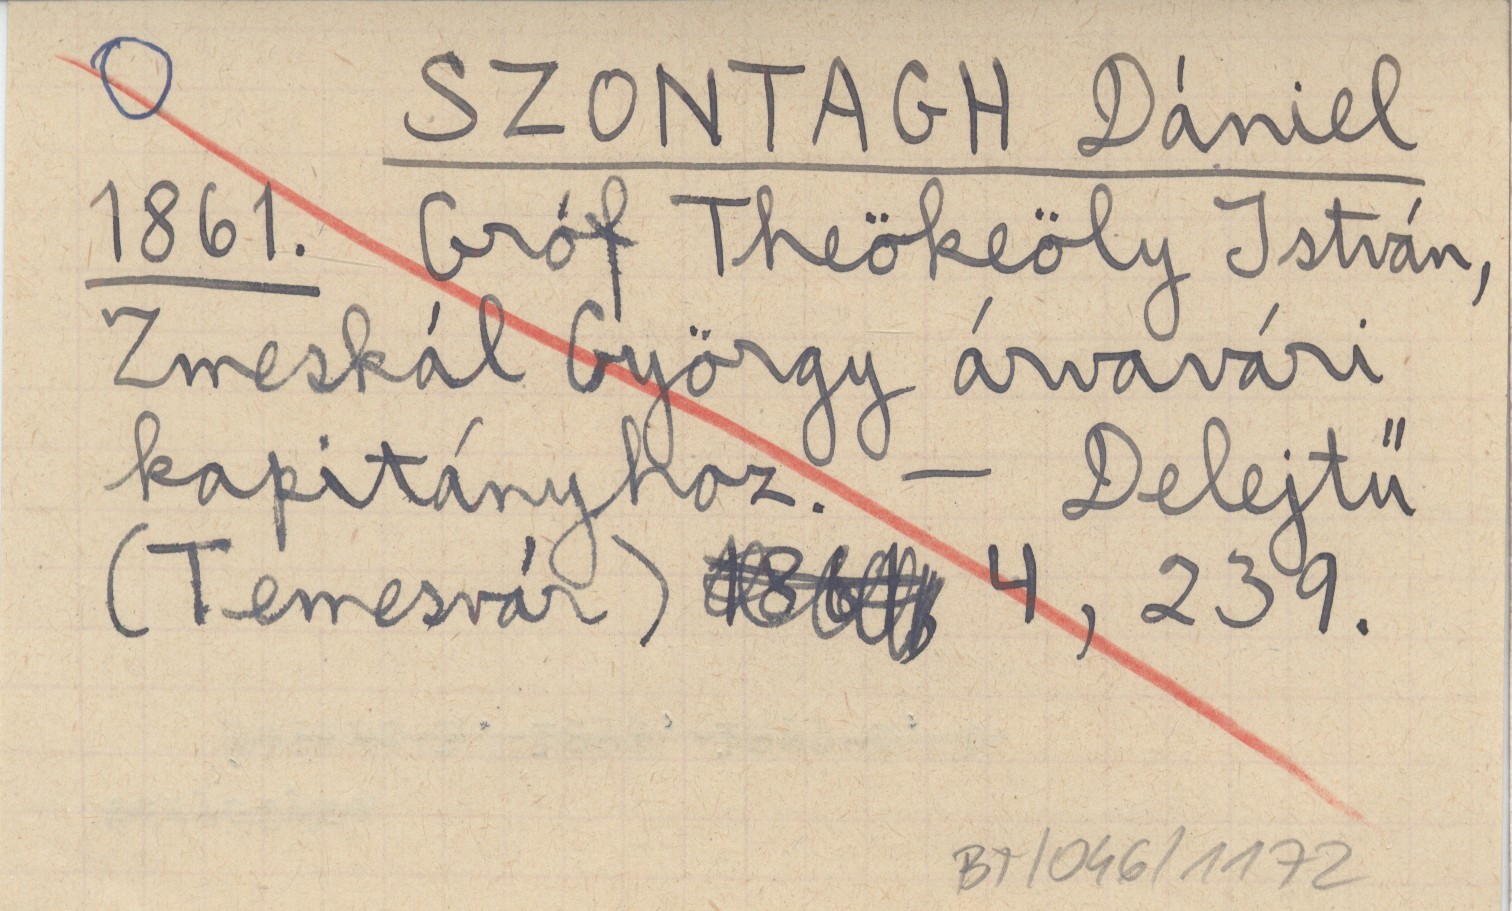 SZONTAGH Dániel
1861. Gróf Theökeöly István,
Zmeskál György árvavári
kapitányhoz. — Delejtű
(Temesvár) 4, 239.
BT/046/1172